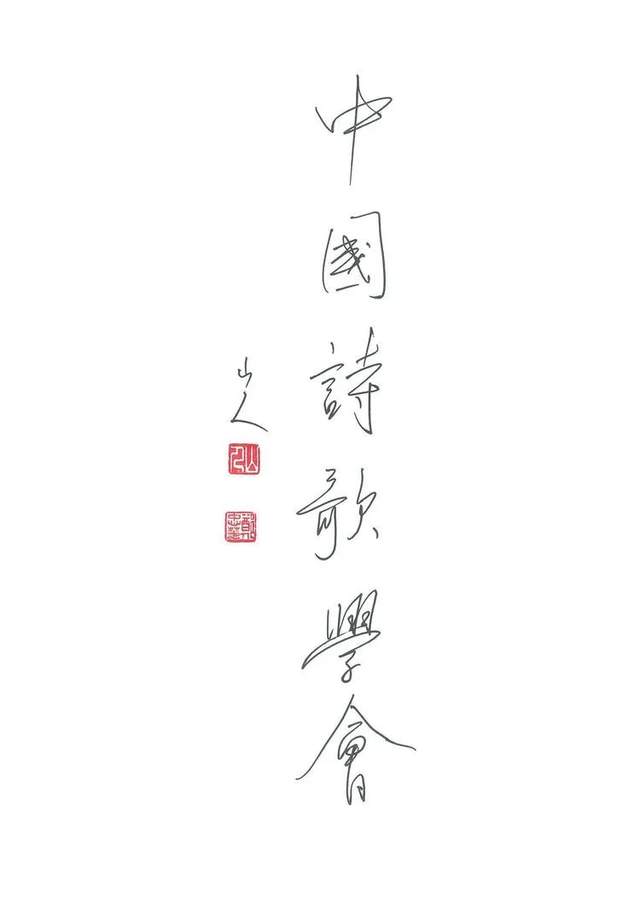 中國詩歌學會
山人
山人